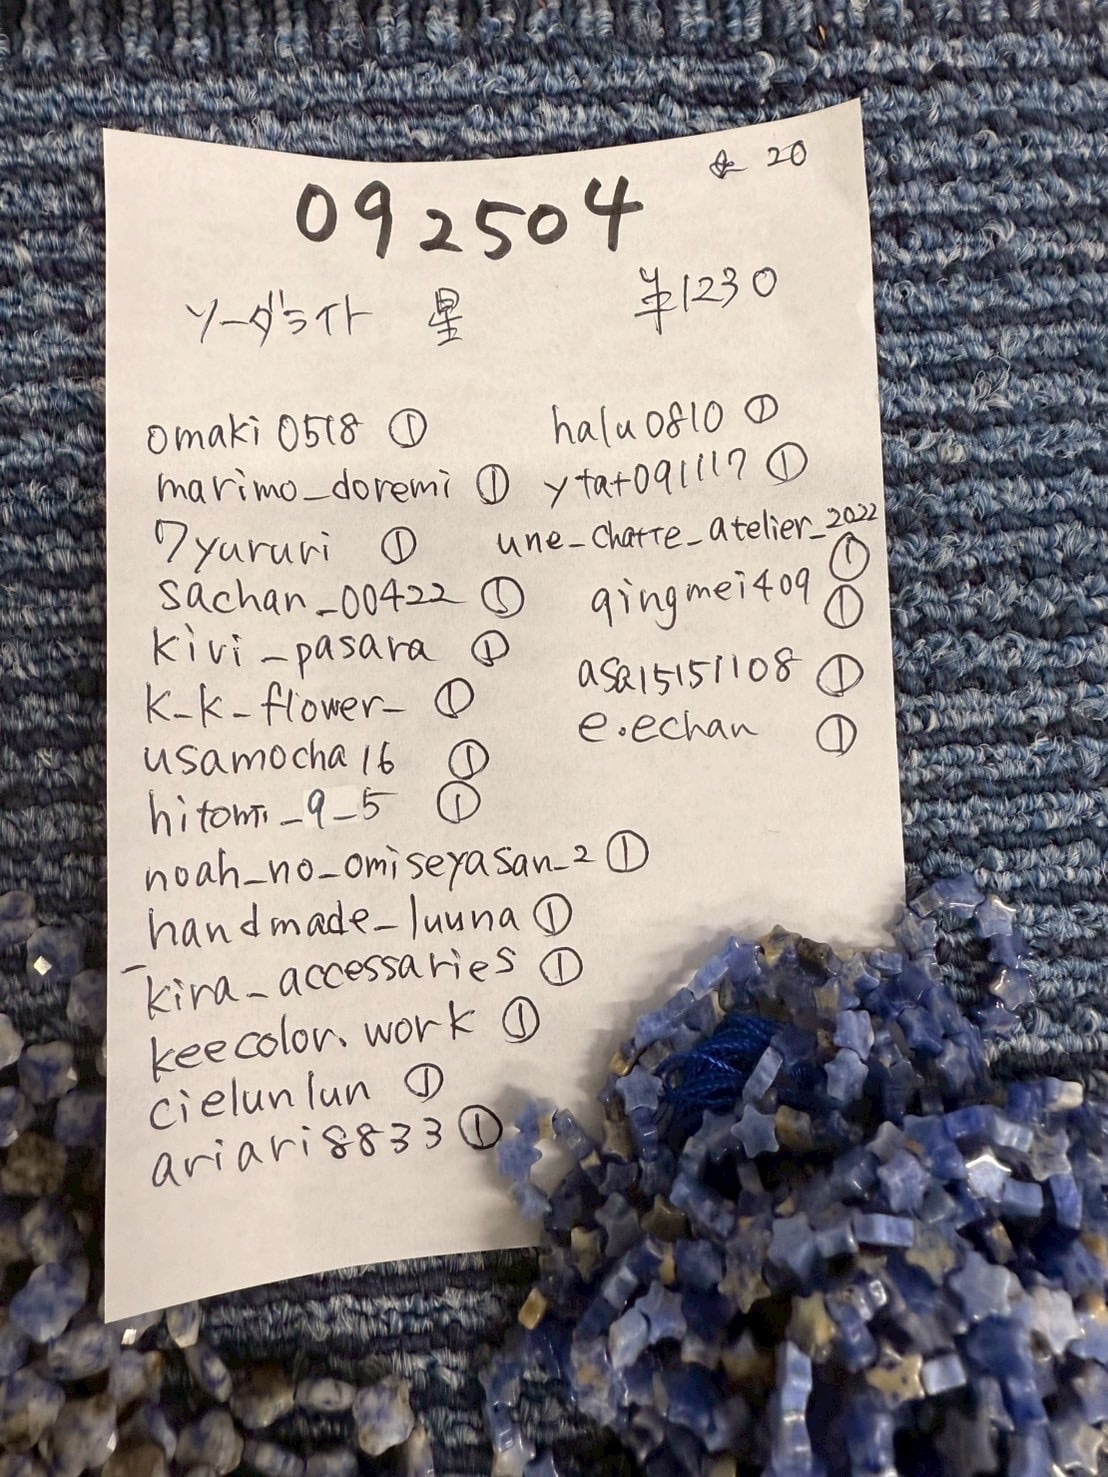 全 20
092504
ソーダライト 星 ¥1230
omaki0518 ①
marimo_doremi ①
7yururi ①
sachan_00422 ①
kivi_pasara ①
k_k_flower_ ①
usamocha16 ①
hitomi_9_5 ①
noah_no_omiseyasan_2 ①
handmade_luuna ①
kira_accessaries ①
keecolor.work ①
cielunlun ①
ariari8833 ①
halu0810 ①
ytat091117 ①
une_chatte_atelier_2022 ①
qingmei409 ①
asa15151108 ①
e.echan ①